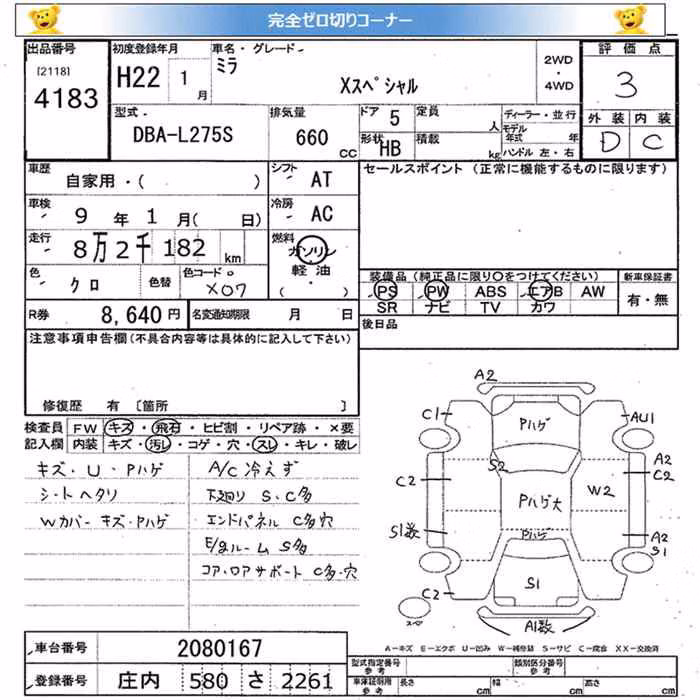 完全ゼロ切りコーナー
出品番号 初度登録年月 車名・グレード 評価点
[2118] 4183 H22 1月 ミラ Xスペシャル 2WD・4WD 3
型式 排気量 ドア 5 定員 人 ディーラー・並行 外装 内装
DBA-L275S 660 CC 形状 HB 積載 kg モデル年式 年 ハンドル 左・右 D C
車歴 シフト セールスポイント (正常に機能するものに限ります)
自家用・( ) AT
車検 9年 1月( 日) 冷房 AC
走行 8万2千182 km 燃料 ガソリン 軽油 ・( )
色 クロ 色替 色コード X07
装備品 (純正品に限り○をつけてください) 新車保証書
PS PW ABS エアB AW 有・無
SR ナビ TV カワ
R券 8,640円 名変通知期限 月 日 後日品
注意事項申告欄(不具合内容等は具体的に記入して下さい)
修復歴 有 〔箇所 〕
検査員 FW キズ・飛石・ヒビ割・リペア跡・×要
記入欄 内装 キズ・汚し・コゲ・穴・スレ・キレ・破レ
キズ・U・Pハゲ A/C冷えず
シートヘタリ 下廻り S.C多
Wカバー キズ・Pハゲ エンドパネル C多穴
E/gルーム S多
コア・ロアサポート C多・穴
A2
C1 Pハゲ AU1
S2 A2
C2 C2
Pハゲ大 W2
S1数 Pハゲ A2
S1
C2 S1
スペ A1数
A-キズ E-エクボ U-凹み W-補修跡 S-サビ C-腐食 XX-交換済
車台番号 2080167
登録番号 庄内 580 さ 2261
型式指定番号 参考 類別区分番号 参考
車体証明用 参考 長さ cm 幅 cm 高さ cm